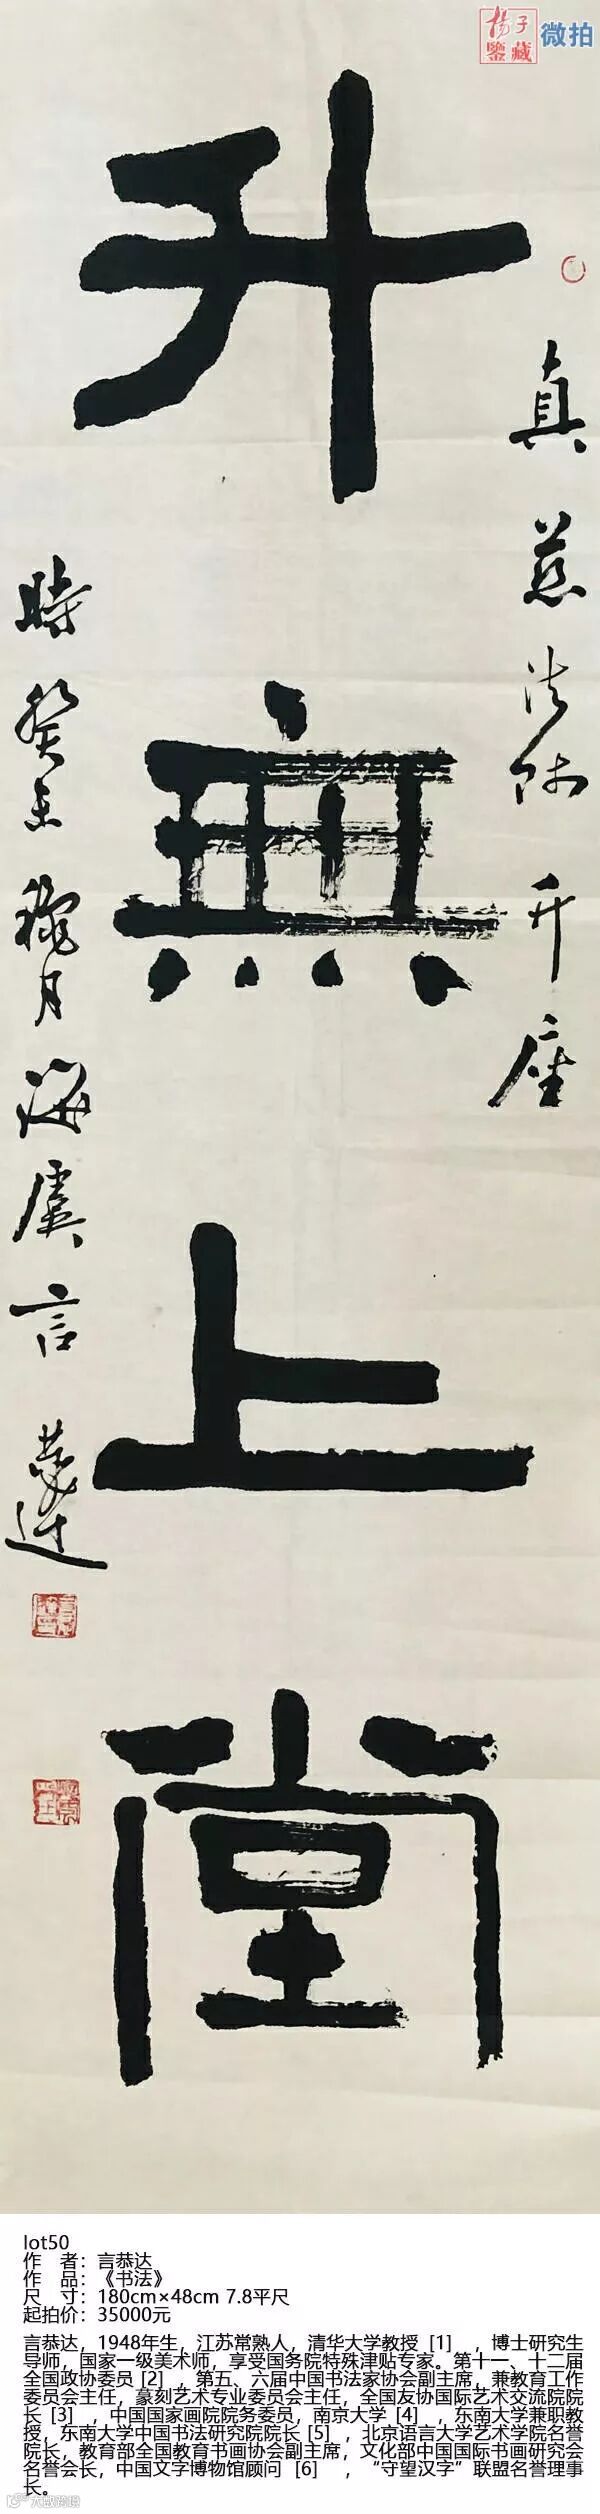 揚子鑒藏
微拍
真慈法師升座
升無上堂
時癸未穐月海虞言恭達
lot50
作 者：言恭达
作 品：《书法》
尺 寸：180cm×48cm 7.8平尺
起拍价：35000元
言恭达，1948年生，江苏常熟人，清华大学教授 [1] ，博士研究生
导师，国家一级美术师，享受国务院特殊津贴专家。第十一、十二届
全国政协委员 [2] ，第五、六届中国书法家协会副主席，兼教育工作
委员会主任，篆刻艺术专业委员会主任，全国友协国际艺术交流院院
长 [3] ，中国国家画院院务委员，南京大学 [4] ，东南大学兼职教
授，东南大学中国书法研究院院长 [5] ，北京语言大学艺术学院名誉
院长，教育部全国教育书画协会副主席，文化部中国国际书画研究会
名誉会长，中国文字博物馆顾问 [6] ，“守望汉字”联盟名誉理事
长。